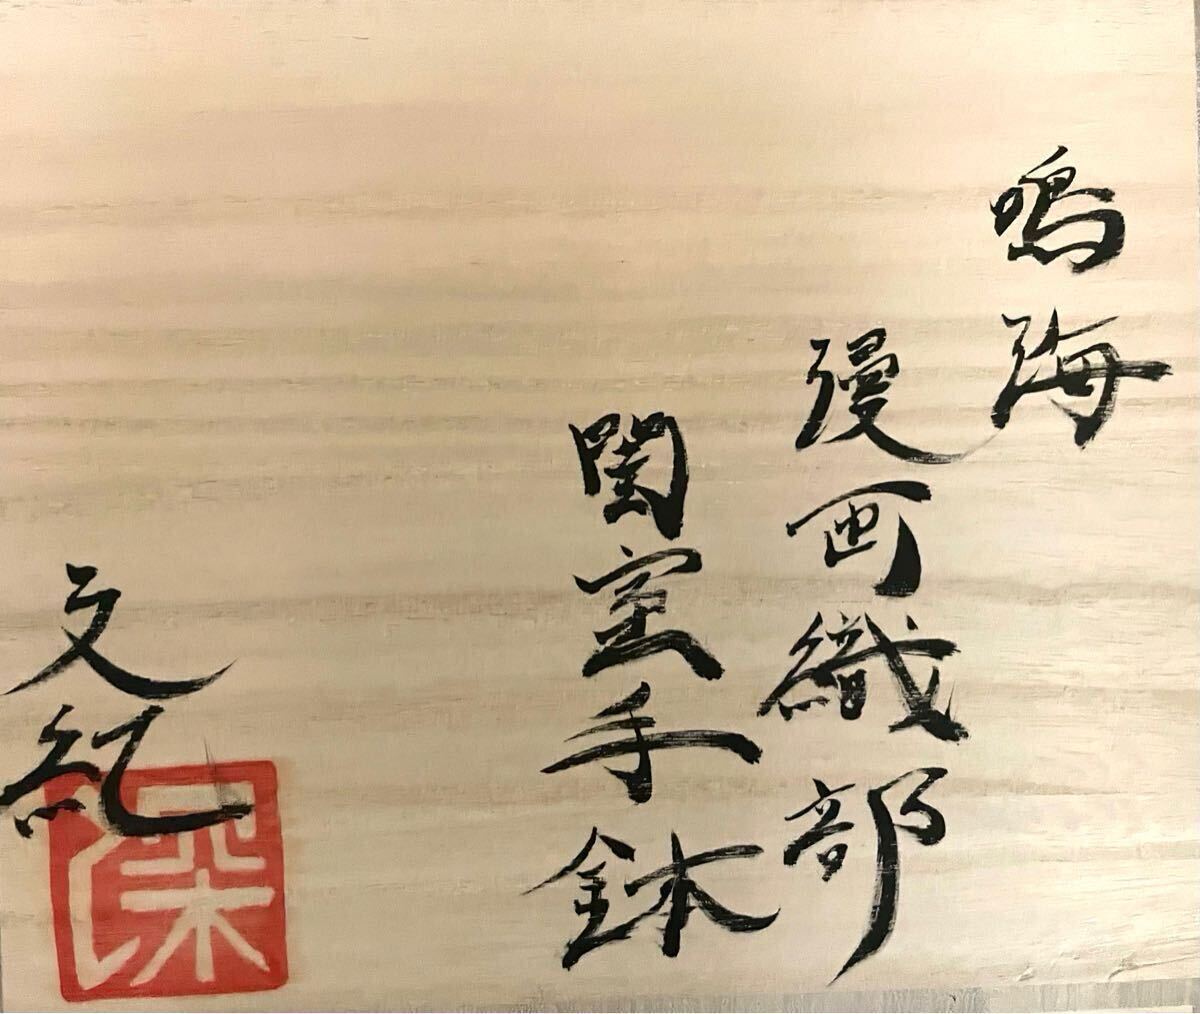 鳴海
漫画織部
閨室手鉢
文紀
深